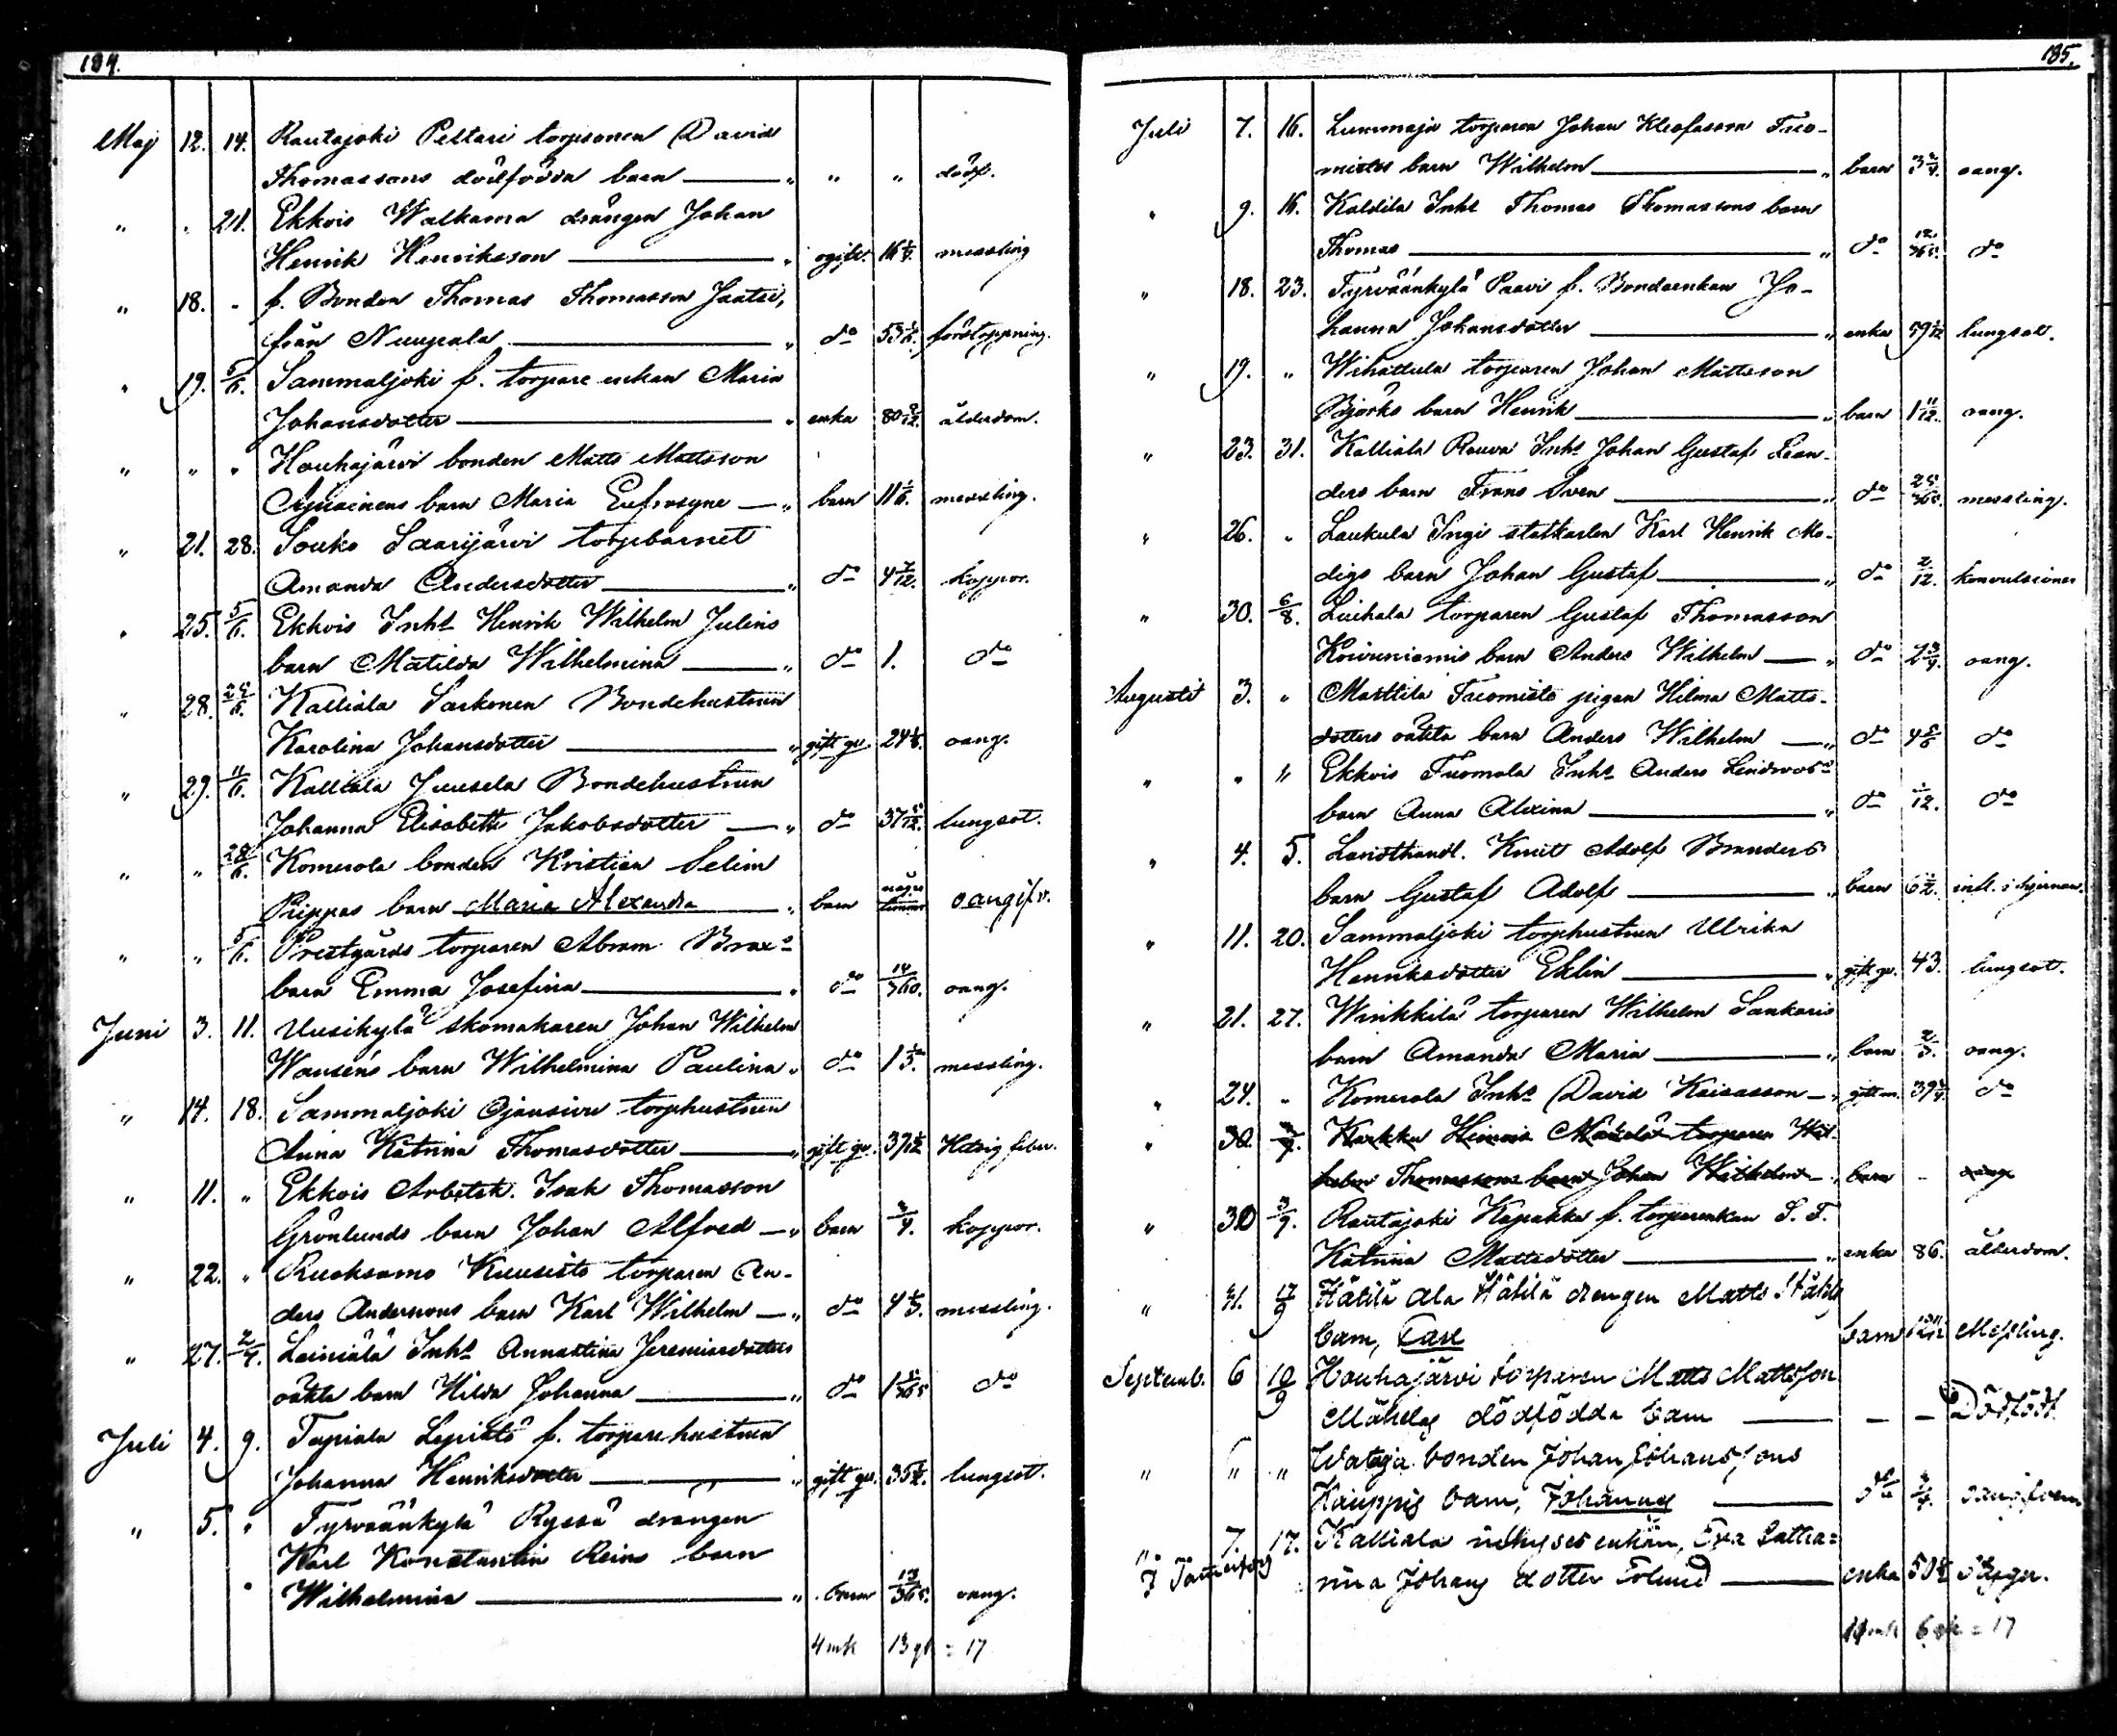 184.
Maj 12. 14. Rautajoki Peltari torpsonen David
Thomassons dödfödda barn — „ „ „ dödf.
„ „ 21. Ekkois Walkama drängen Johan
Henrik Henriksson — „ ogift. 16 messling
„ 18. „ f. Bonden Thomas Thomasson Jaatsi,
från Nuupala — „ do 53 förstoppning.
„ 19. 5/6. Sammaljoki f. torpare enkan Maria
Johansdotter — „ enka 80 ålderdom.
„ „ „ Houhajärvi bonden Matts Mattsson
barn Maria Eufrosyne — „ barn 11 1/6. messling.
„ 21. 28. Souko Saarijärvi torpbarnet
Amanda Andersdotter — „ do 4 koppor.
„ 25. 5/6. Ekkois Inhs Henrik Wilhelm Julins
barn Matilda Wilhelmina — „ do 1. do
„ 28. 25/6. Kalliala Sarkonen Bondehustrun
Karolina Johansdotter — „ gift qv. 24 oang.
„ 29. 11/6. Kalliala Juusela Bondehustrun
Johanna Elisabeth Jakobsdotter — „ do 37 lungsot.
„ „ 28/6. Komerola bonden Kristian Selim
Prippas barn Maria Alexandra „ barn några timmar oangifv.
„ „ 5/6. Prestgårds torparen Abram Brax's
barn Emma Josefina — „ do 14/360. oang.
Juni 3. 11. Uusikylä skomakaren Johan Wilhelm
Wanséns barn Wilhelmina Paulina „ do 1 messling.
„ 14. 18. Sammaljoki Ojansivu torphustrun
Anna Katrina Thomasdotter — „ gift qv. 37 Hetsig feber.
„ 11. „ Ekkois Arbetsk. Isak Thomasson
Grönlunds barn Johan Alfred — „ barn 3/4. koppor.
„ 22. „ Ruoksamo Kuusisto torparen An-
ders Andersons barn Karl Wilhelm — „ do 4 messling.
„ 27. 2/7. Leiniälä Inhs Annastina Jeremiasdotters
oäkta barn Hilda Johanna — „ do 1 do
Juli 4. 9. Tapiala Lepistö f. torparehustrun
Johanna Henriksdotter — „ gift qv. 35 lungsot.
„ 5. „ Tyrväänkylä Ryssä drängen
Karl Konstantin Reins barn
Wilhelmina — „ barn 13/365. oang.
4 mk 13 qk = 17
185.
Juli 7. 16. Lummaja torparen Johan Kleofasson Tuo-
mistos barn Wilhelm — „ barn 3 oang.
„ 9. 16. Kaldila Inhs Thomas Thomassons barn
Thomas — „ do 12/365. do
„ 18. 23. Tyrväänkylä Paavi f. Bondeenkan Jo-
hanna Johansdotter — „ enka 59 lungsot.
„ 19. „ Wihattula torparen Johan Mattsson
Björks barn Henrik — „ barn 1 11/12. oang.
„ 23. 31. Kalliala Rauva Inhs Johan Gustaf Lean-
ders barn Frans Sven — „ do 25/365. messling.
„ 26. „ Laukula Ingi statkarlen Karl Henrik Mo-
digs barn Johan Gustaf — „ do 2/12. konvulsioner
„ 30. 6/8. Luihala torparen Gustaf Thomasson
Koivuniemis barn Anders Wilhelm — „ do 2 3/4. oang.
Augusti 3. „ Marttila Tuomisto pigan Hilma Matts-
dotters oäkta barn Anders Wilhelm — „ do 4 5/6 do
„ „ „ Ekkois Tuomola Inhs Anders Lindroos's
barn Anna Alexina — „ do 1/12. do
„ 4. 5. Landthandl. Knut Adolf Branders
barn Gustaf Adolf — „ barn 6 1/2. infl. i hjernan.
„ 11. 20. Sammaljoki torphustrun Ulrika
Henriksdotter Eklin — „ gift qv. 43. lungsot.
„ 21. 27. Winkkilä torparen Wilhelm Sankaris
barn Amanda Maria — „ barn 2/3. oang.
„ 24. „ Komerola Inhs David Kaisasson — „ gift m. 39 do
„ 30. 3/9. Karkku Heinoo Mäkelä torparen Wil-
helm Thomassons barn Johan Wilhelm — „ barn - oang.
„ 30 3/9. Rautajoki Kapakka f. torparenkan S. T.
Katrina Mattsdotter — „ enka 86. ålderdom.
„ 31. 17/9 Hätilä Ala Hätilä drengen Matts Ståhls
barn, Carl barn Messling.
Septemb. 6 10/9 Houhajärvi torparen Matts Mattsson
Mäkeläs dödfödda barn — — — Dödfödt.
„ „ „ Wataja bonden Johan Johanssons
Kauppis barn, Johannes — do oangifven
„ 7. 17. Kalliala inhyses enkan, Eva Catha=
rina Johans dotter Forlund — enka 50
11 mk 6 qk = 17